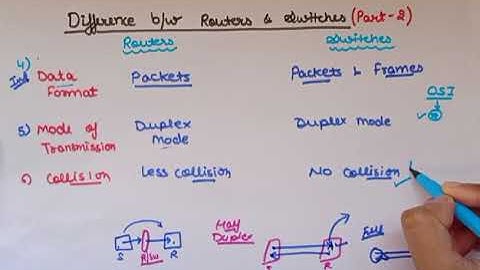 Difference b/w Routers & Switches (Part-2)
Routers Switches
4)
Data Format Packets Packets & Frames
OSI
5) Mode of Transmission Duplex mode Duplex mode
6) Collision Less collision No Collision
Half Duplex Full
S R/SW R S R